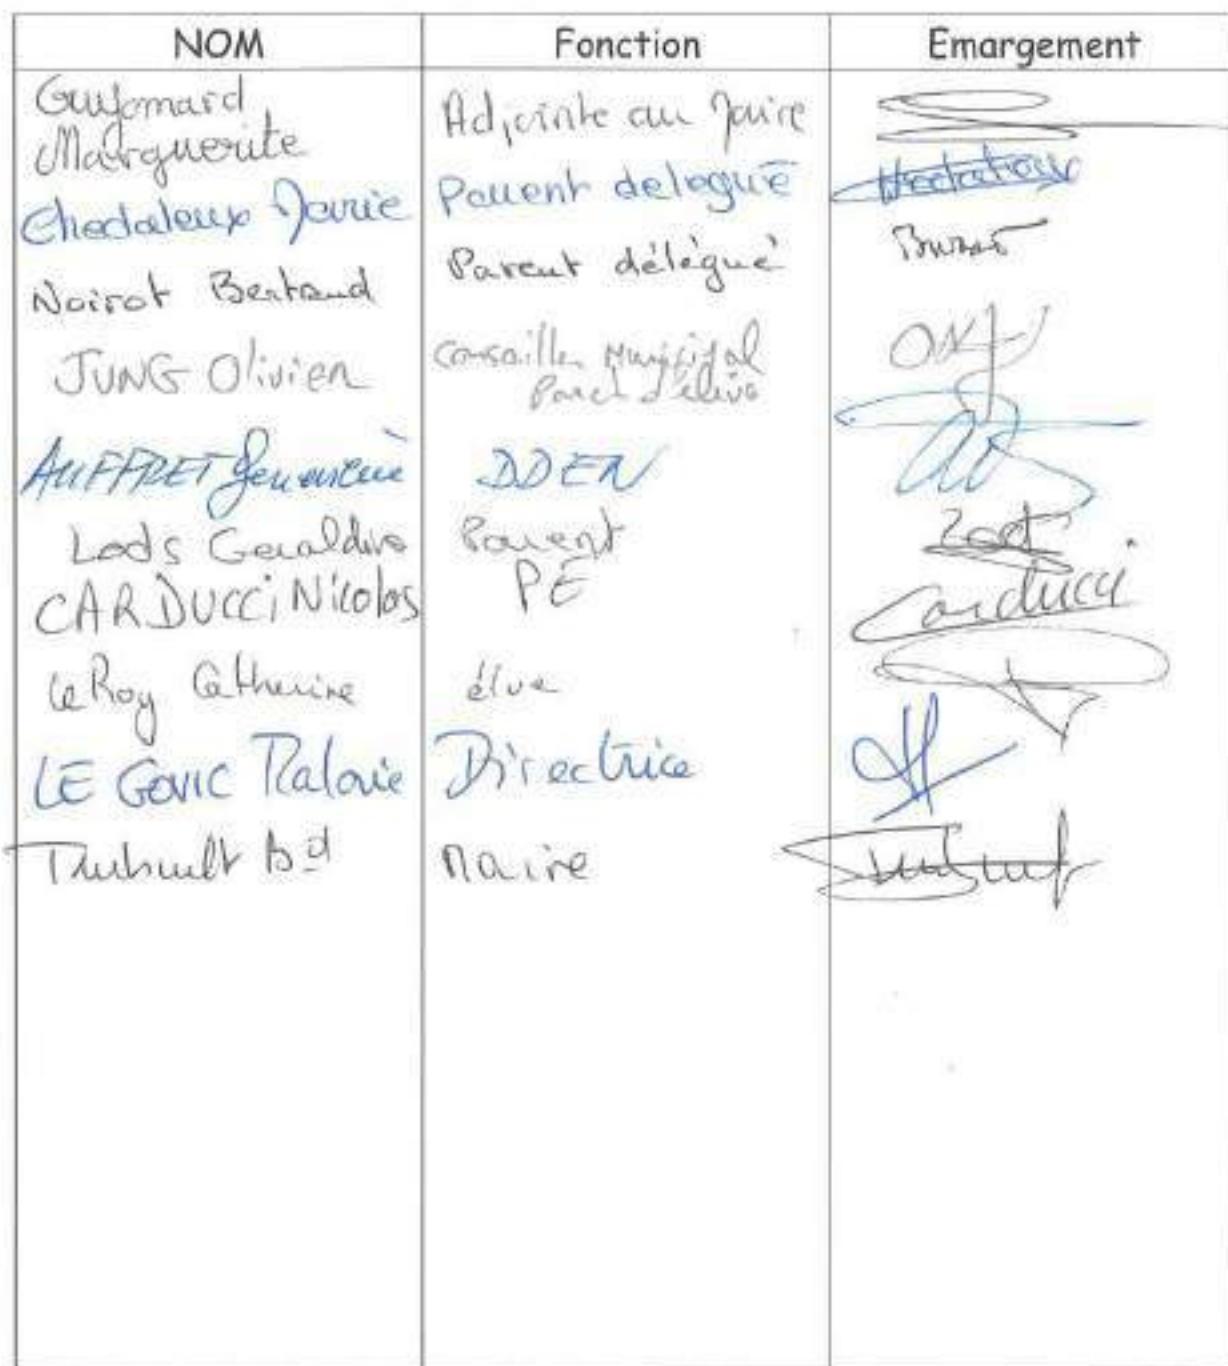 NOM Fonction Emargement
Guyomard
Marguerite Adjointe au Maire
Chedaleux Marie Parent delegué
Noirot Bertrand Parent délégué
JUNG Olivier Conseiller Municipal
Parent d'élève
AUFFRET Geneviève DDEN
Lods Geraldine Parent
CARDUCCi Nicolas PE Carducci
Le Roy Catherine élue
LE GOVIC Malorie Directrice
Thubault Bd Maire